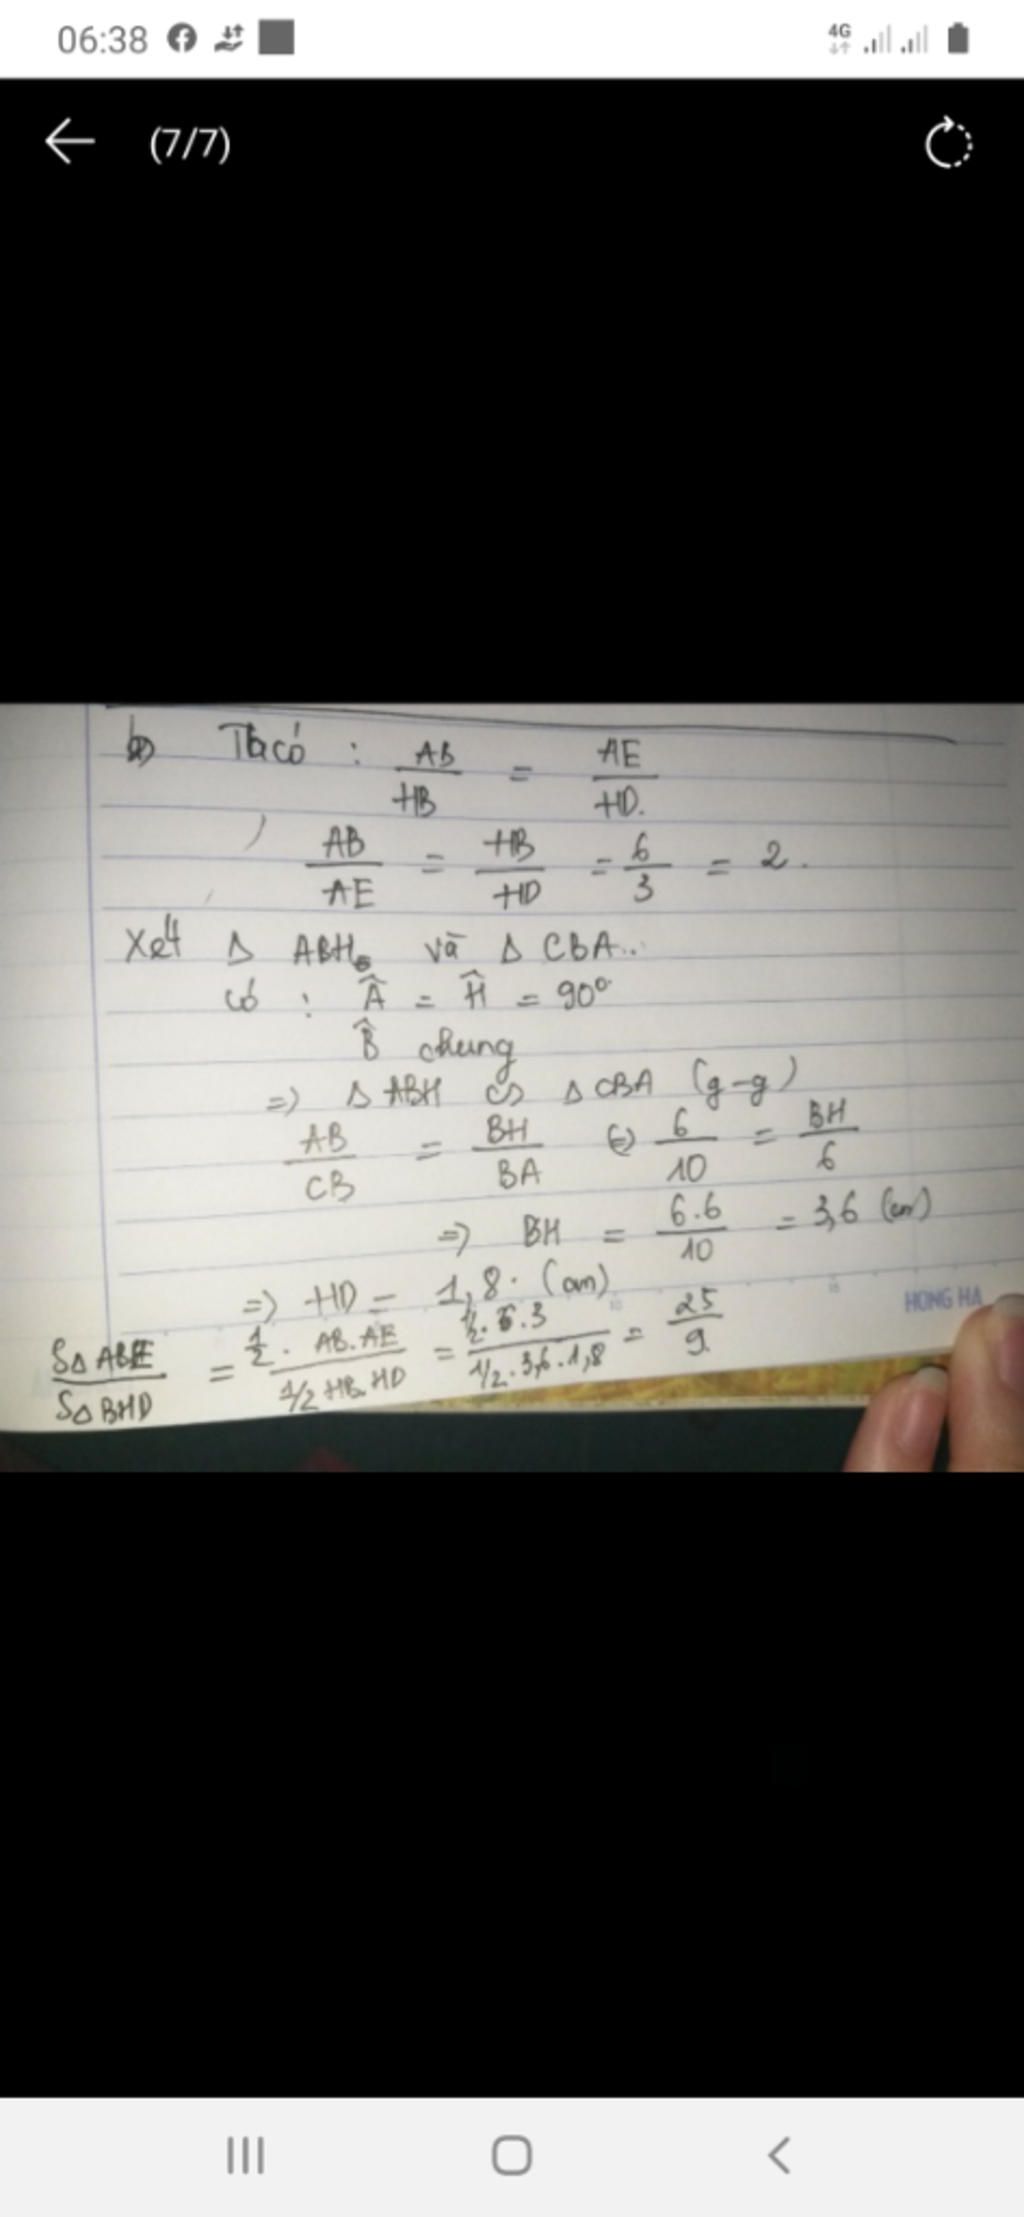 06:38 4G
(7/7)
b) Ta có : AB/HB = AE/HD.
AB/AE = HB/HD = 6/3 = 2.
Xét Δ ABH và Δ CBA..
có : Â = Ĥ = 90°
B̂ chung
=> Δ ABH ∽ Δ CBA (g-g)
AB/CB = BH/BA (=) 6/10 = BH/6
=> BH = 6.6/10 = 3,6 (cm)
=> HD = 1,8. (cm)
HONG HA
SΔ ABE/SΔ BHD = 1/2 . AB.AE/1/2 HB.HD = 1/2.6.3/1/2.3,6.1,8 = 25/9